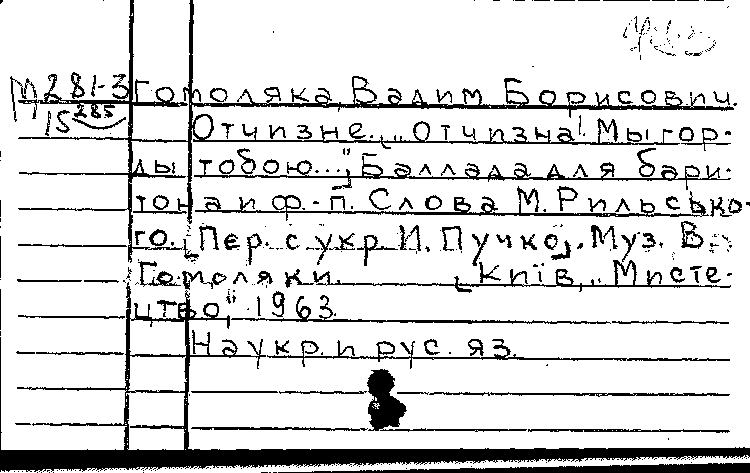 М 281-3 Гомоляка, Вадим Борисович.
15 285 Отчизне. [„Отчизна! Мы гор-
ды тобою..."] Баллада для бари-
тона и ф.-п. Слова М. Рильсько-
го. [Пер. с укр. И. Пучко]. Муз. В.
Гомоляки. [Київ, „Мисте-
цтво," 1963.
На укр. и рус. яз.